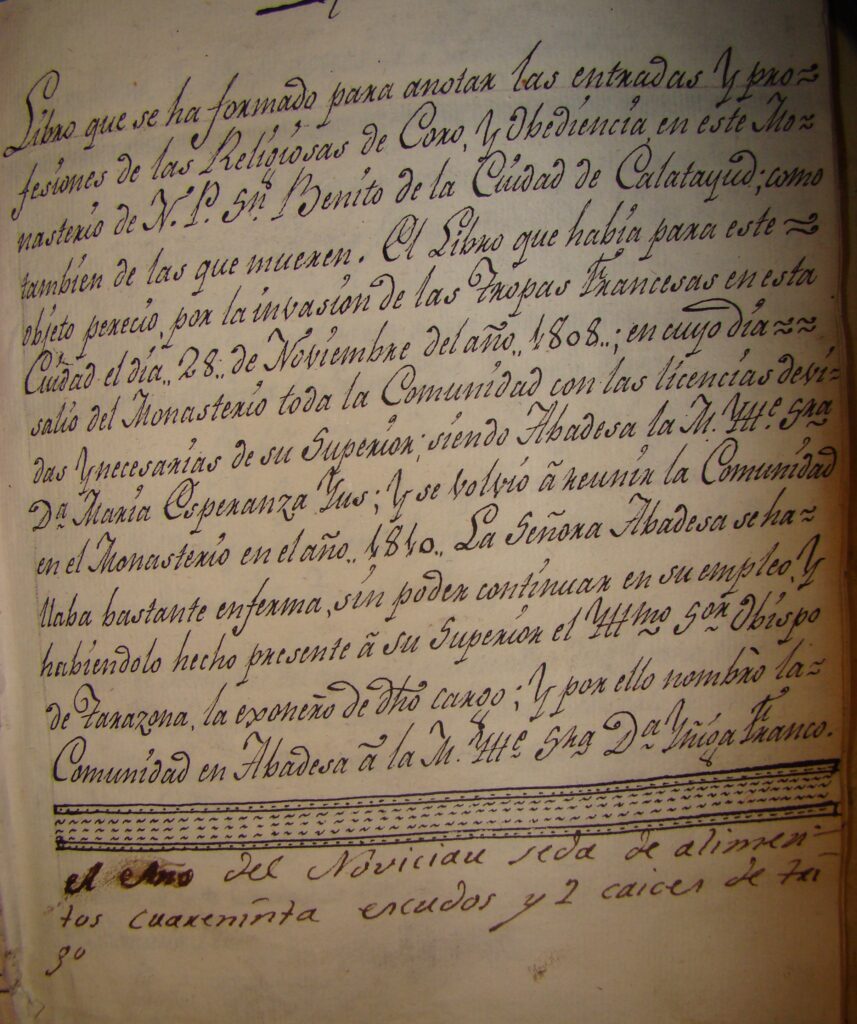 Libro que se ha formado para anotar las entradas y pro=
fesiones de las Religiosas de Coro, y Obediencia, en este Mo=
nasterio de N. P. Sn. Benito de la Cuidad de Calatayud; como
tambien de las que mueren. El Libro que había para este
objeto pereció, por la invasion de las Tropas Francesas en esta
Cuidad el día,, 28,, de Noviembre del año,, 1808,,; en cuyo día
salio del Monasterio toda la Comunidad con las licencias devi=
das y necesarias de su Superior; siendo Abadesa la M. Ille. Sra
Da. Maria Esperanza Yus; y se volvió â reunir la Comunidad
en el Monasterio en el año,, 1810,, La Señora Abadesa se ha=
llaba bastante enferma, sin poder continuar en su empleo, y
habiendolo hecho presente â su Superior el Yllmo. Sor. Obispo
de Tarazona, la exonerò de dho cargo; y por ello nombrò la=
Comunidad en Abadesa â la M. Ille Sra Da Yñiga Franco.
el Año del Noviciau seda de alimen=
tos cuareninta escudos y 2 caices de tri
go